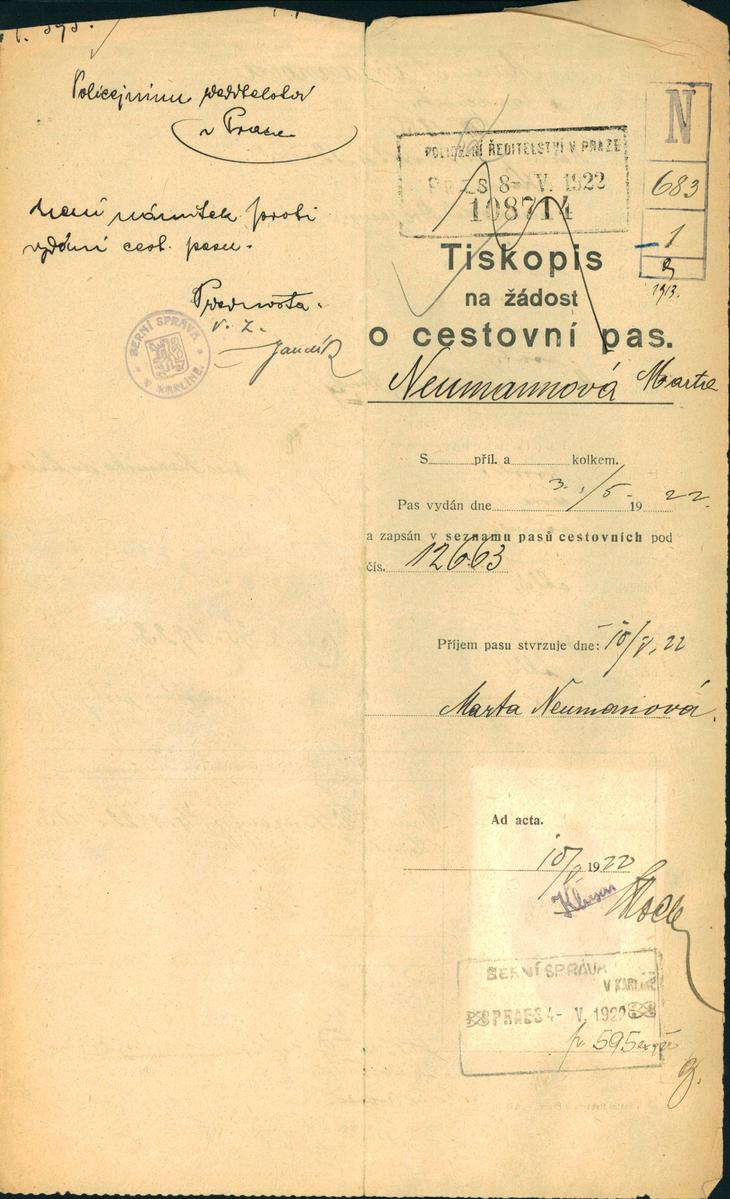 Policejnímu ředitelství
v Praze
není námitek proti
vydání cest. pasu.
Přednosta.
v. z.
BERNÍ SPRÁVA
V KARLÍNĚ.
N
683
1
POLICEJNÍ ŘEDITELSTVÍ V PRAZE
PRAES 8- V. 1922
108714
Tiskopis
na žádost
o cestovní pas.
Neumannová Marta
S příl. a kolkem.
Pas vydán dne 3./5. 1922.
a zapsán v seznamu pasů cestovních pod
čís. 12663
Příjem pasu stvrzuje dne: 10/V. 22
Marta Neumanová.
Ad acta.
10/V 1922
BERNÍ SPRÁVA
V KARLÍNĚ
PRAES 4- V. 192
595